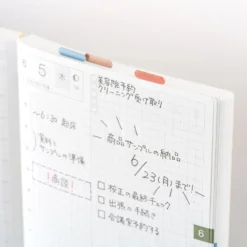 美容院予約
クリーニング受け取り
6
5 木
~6:30 起床
資料と
サンプルの準備
商談
商品サンプルの納品
6/23(月)まで
校正の最終チェック
出張の手続き
会議室予約する
6